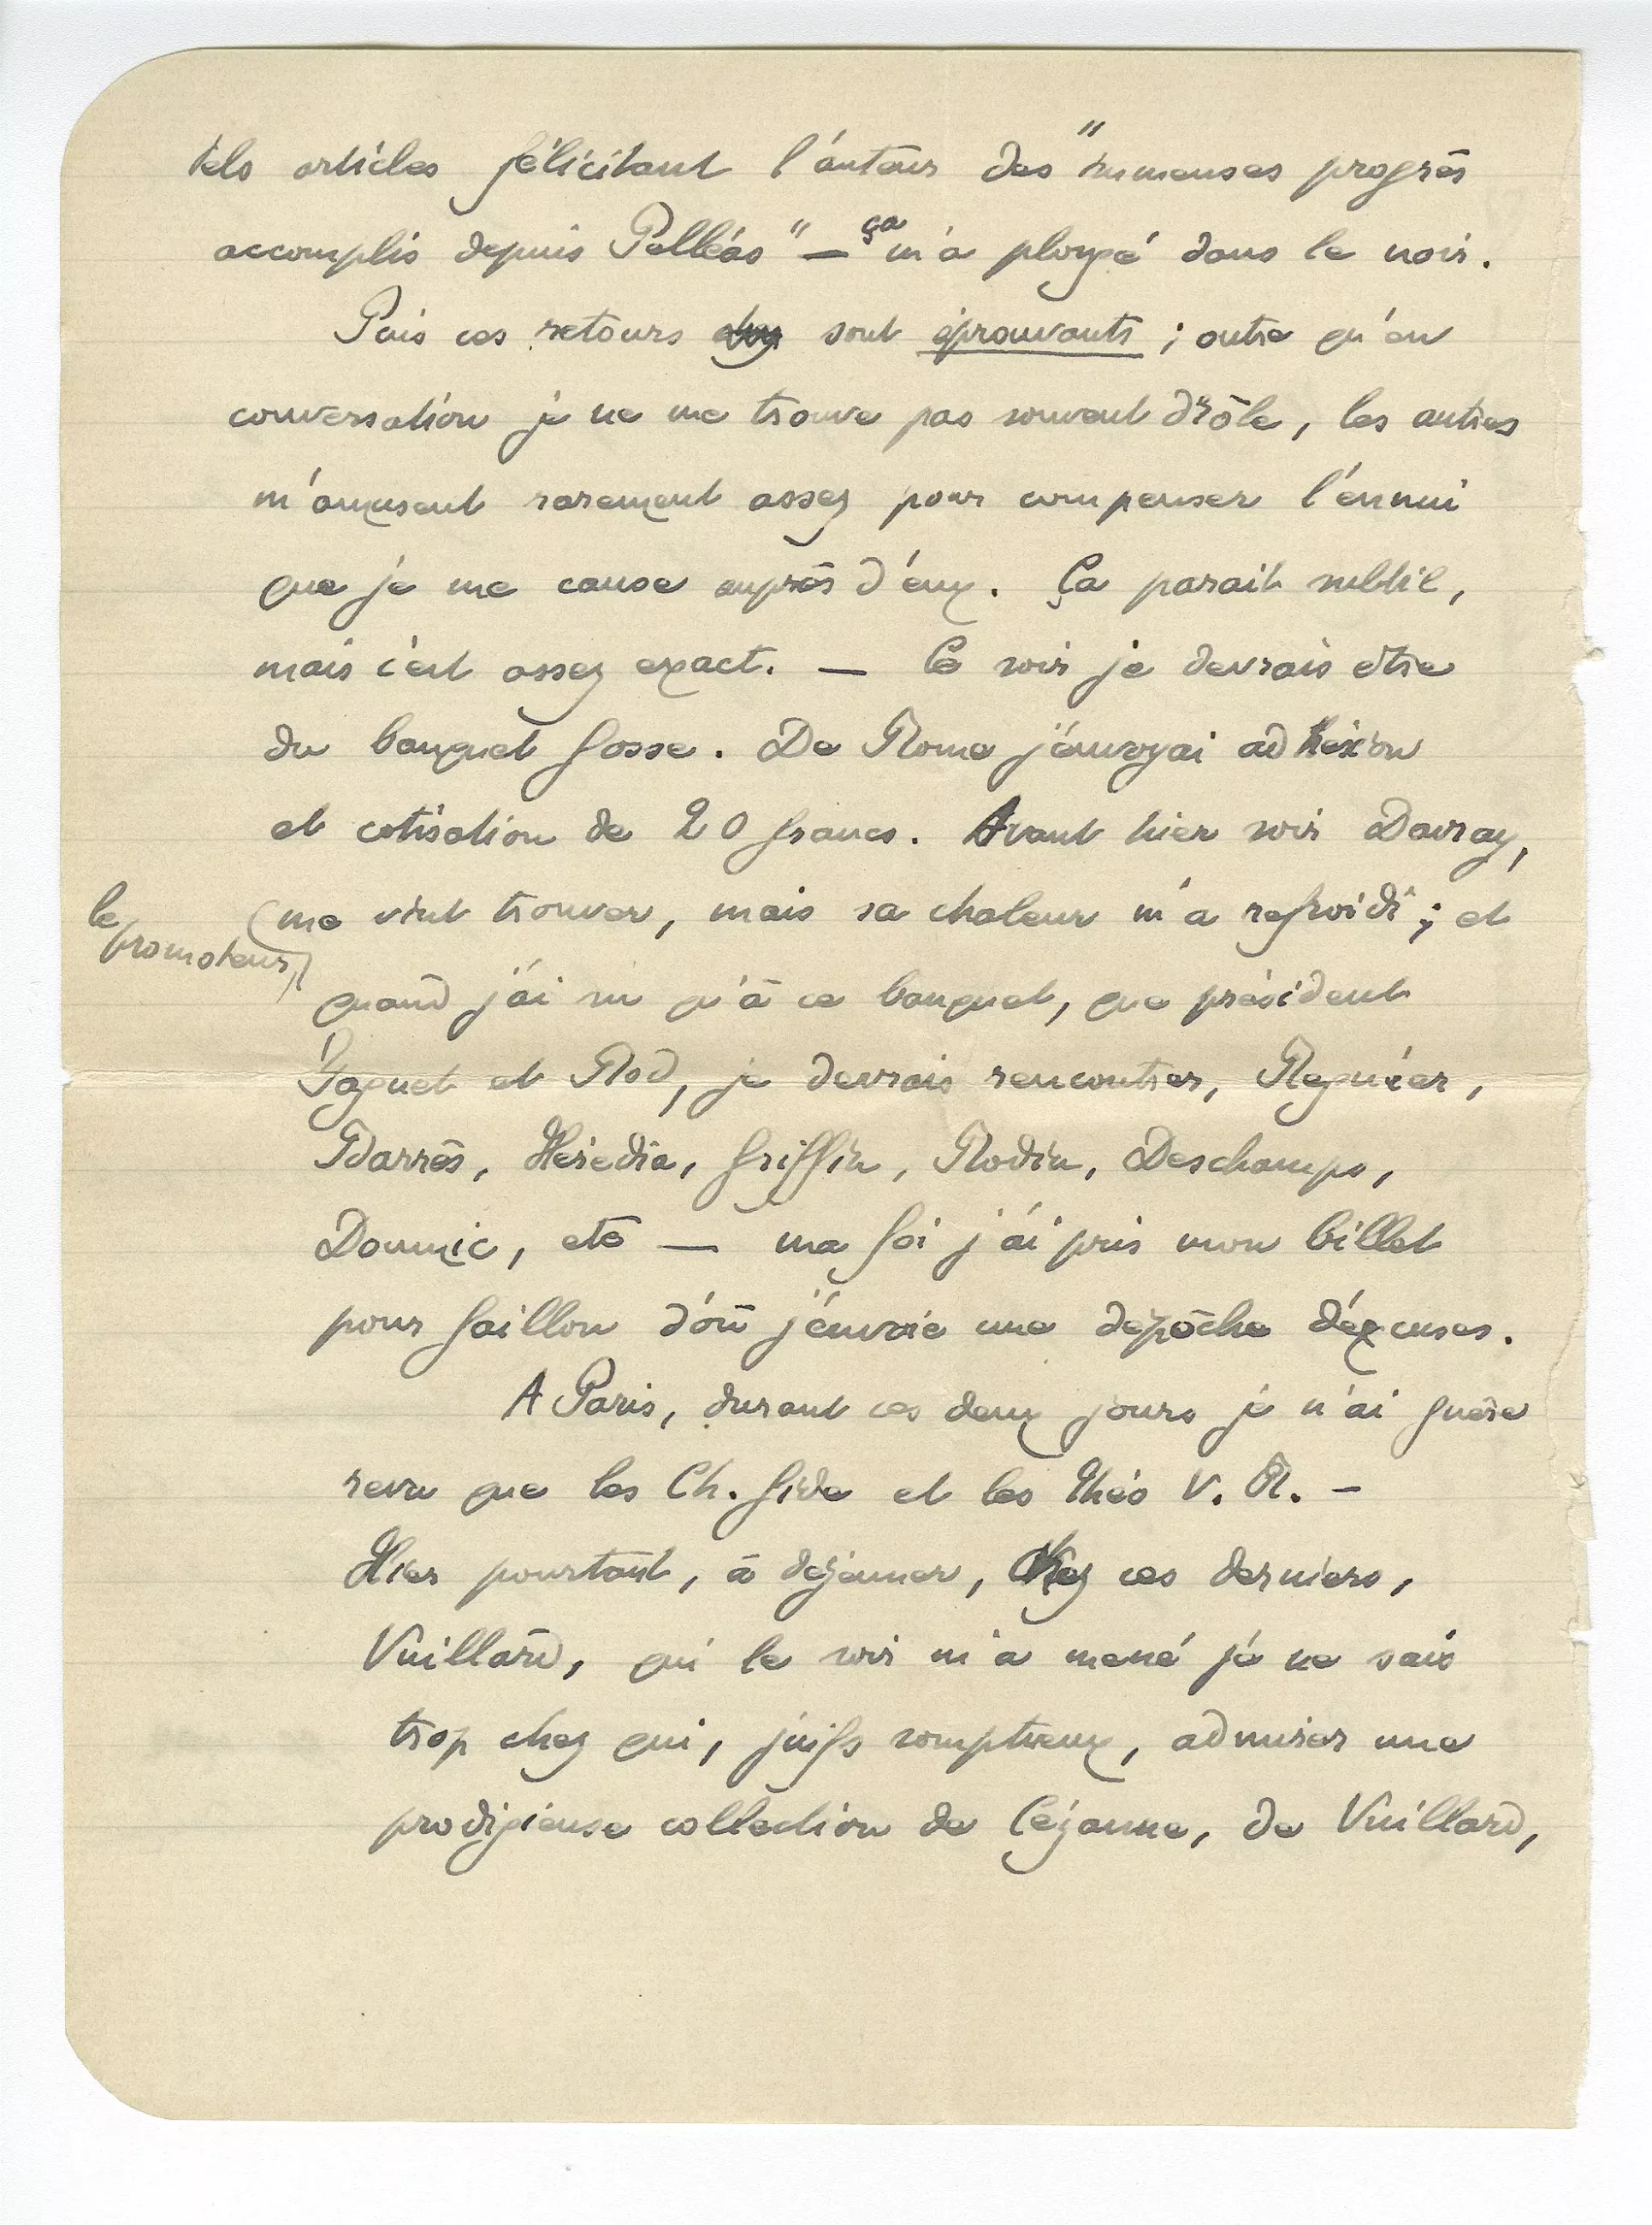 tels articles félicitant l'auteur des "immenses progrès
accomplis depuis Pelléas" — ça m'a plongé dans le noir.
Puis ces retours sont éprouvants ; outre qu'en
conversation je ne me trouve pas souvent drôle, les autres
m'amusent rarement assez pour compenser l'ennui
que je me cause auprès d'eux. Ça parait subtil,
mais c'est assez exact. — Ce soir je devrais être
du banquet Gosse. De Rome j'envoyai adhésion
et cotisation de 20 francs. Avant hier soir Davray,
le promoteur,
(me vint trouver, mais sa chaleur m'a refroidi ; et
quand j'ai su qu'à ce banquet, que président
Faguet et Rod, je devrais rencontrer, Regnier,
Barrès, Hérédia, Griffin, Rodin, Deschamps,
Doumic, etc — ma foi j'ai pris mon billet
pour Gaillon d'où j'envoie une dépêche d'excuses.
A Paris, durant ces deux jours je n'ai guère
revu que les Ch. Gide et les Théo V. R. –
Hier pourtant, à déjeuner, chez ces derniers,
Vuillard, qui le soir m'a mené je ne sais
trop chez qui, juifs somptueux, admirer une
prodigieuse collection de Cézanne, de Vuillard,